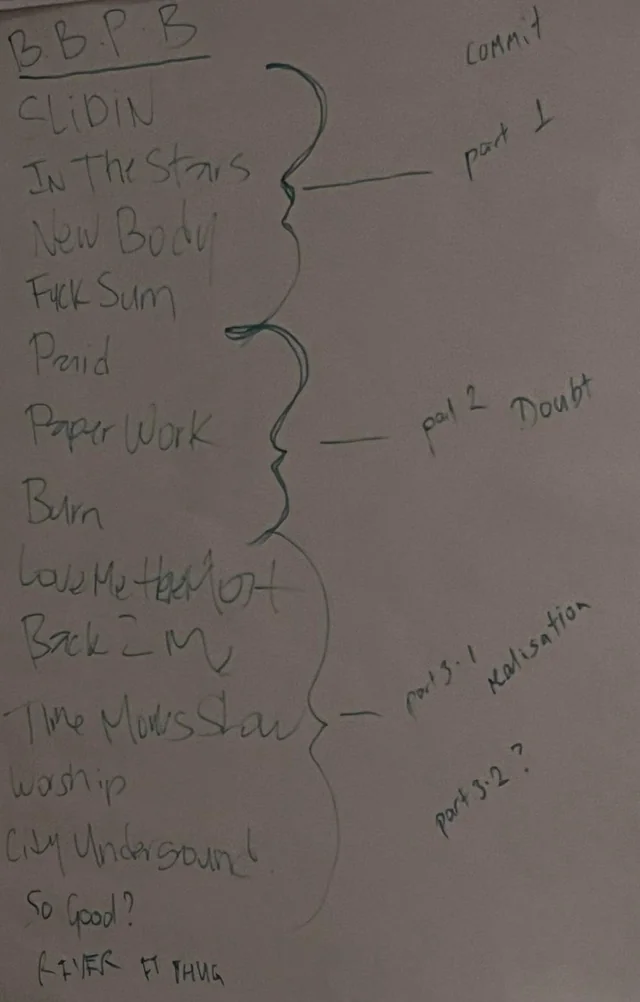 B.B.P.B
COMMIT
SLiDiN
part 1
IN The Stars
New Body
Fuck Sum
Paid
Paper Work
part 2 Doubt
Burn
Love Me the Most
Back 2 Me
part 3.1 realisation
Time Moves Slow
part 3.2?
Worship
City Undersound
So Good?
RIVER FT THUG